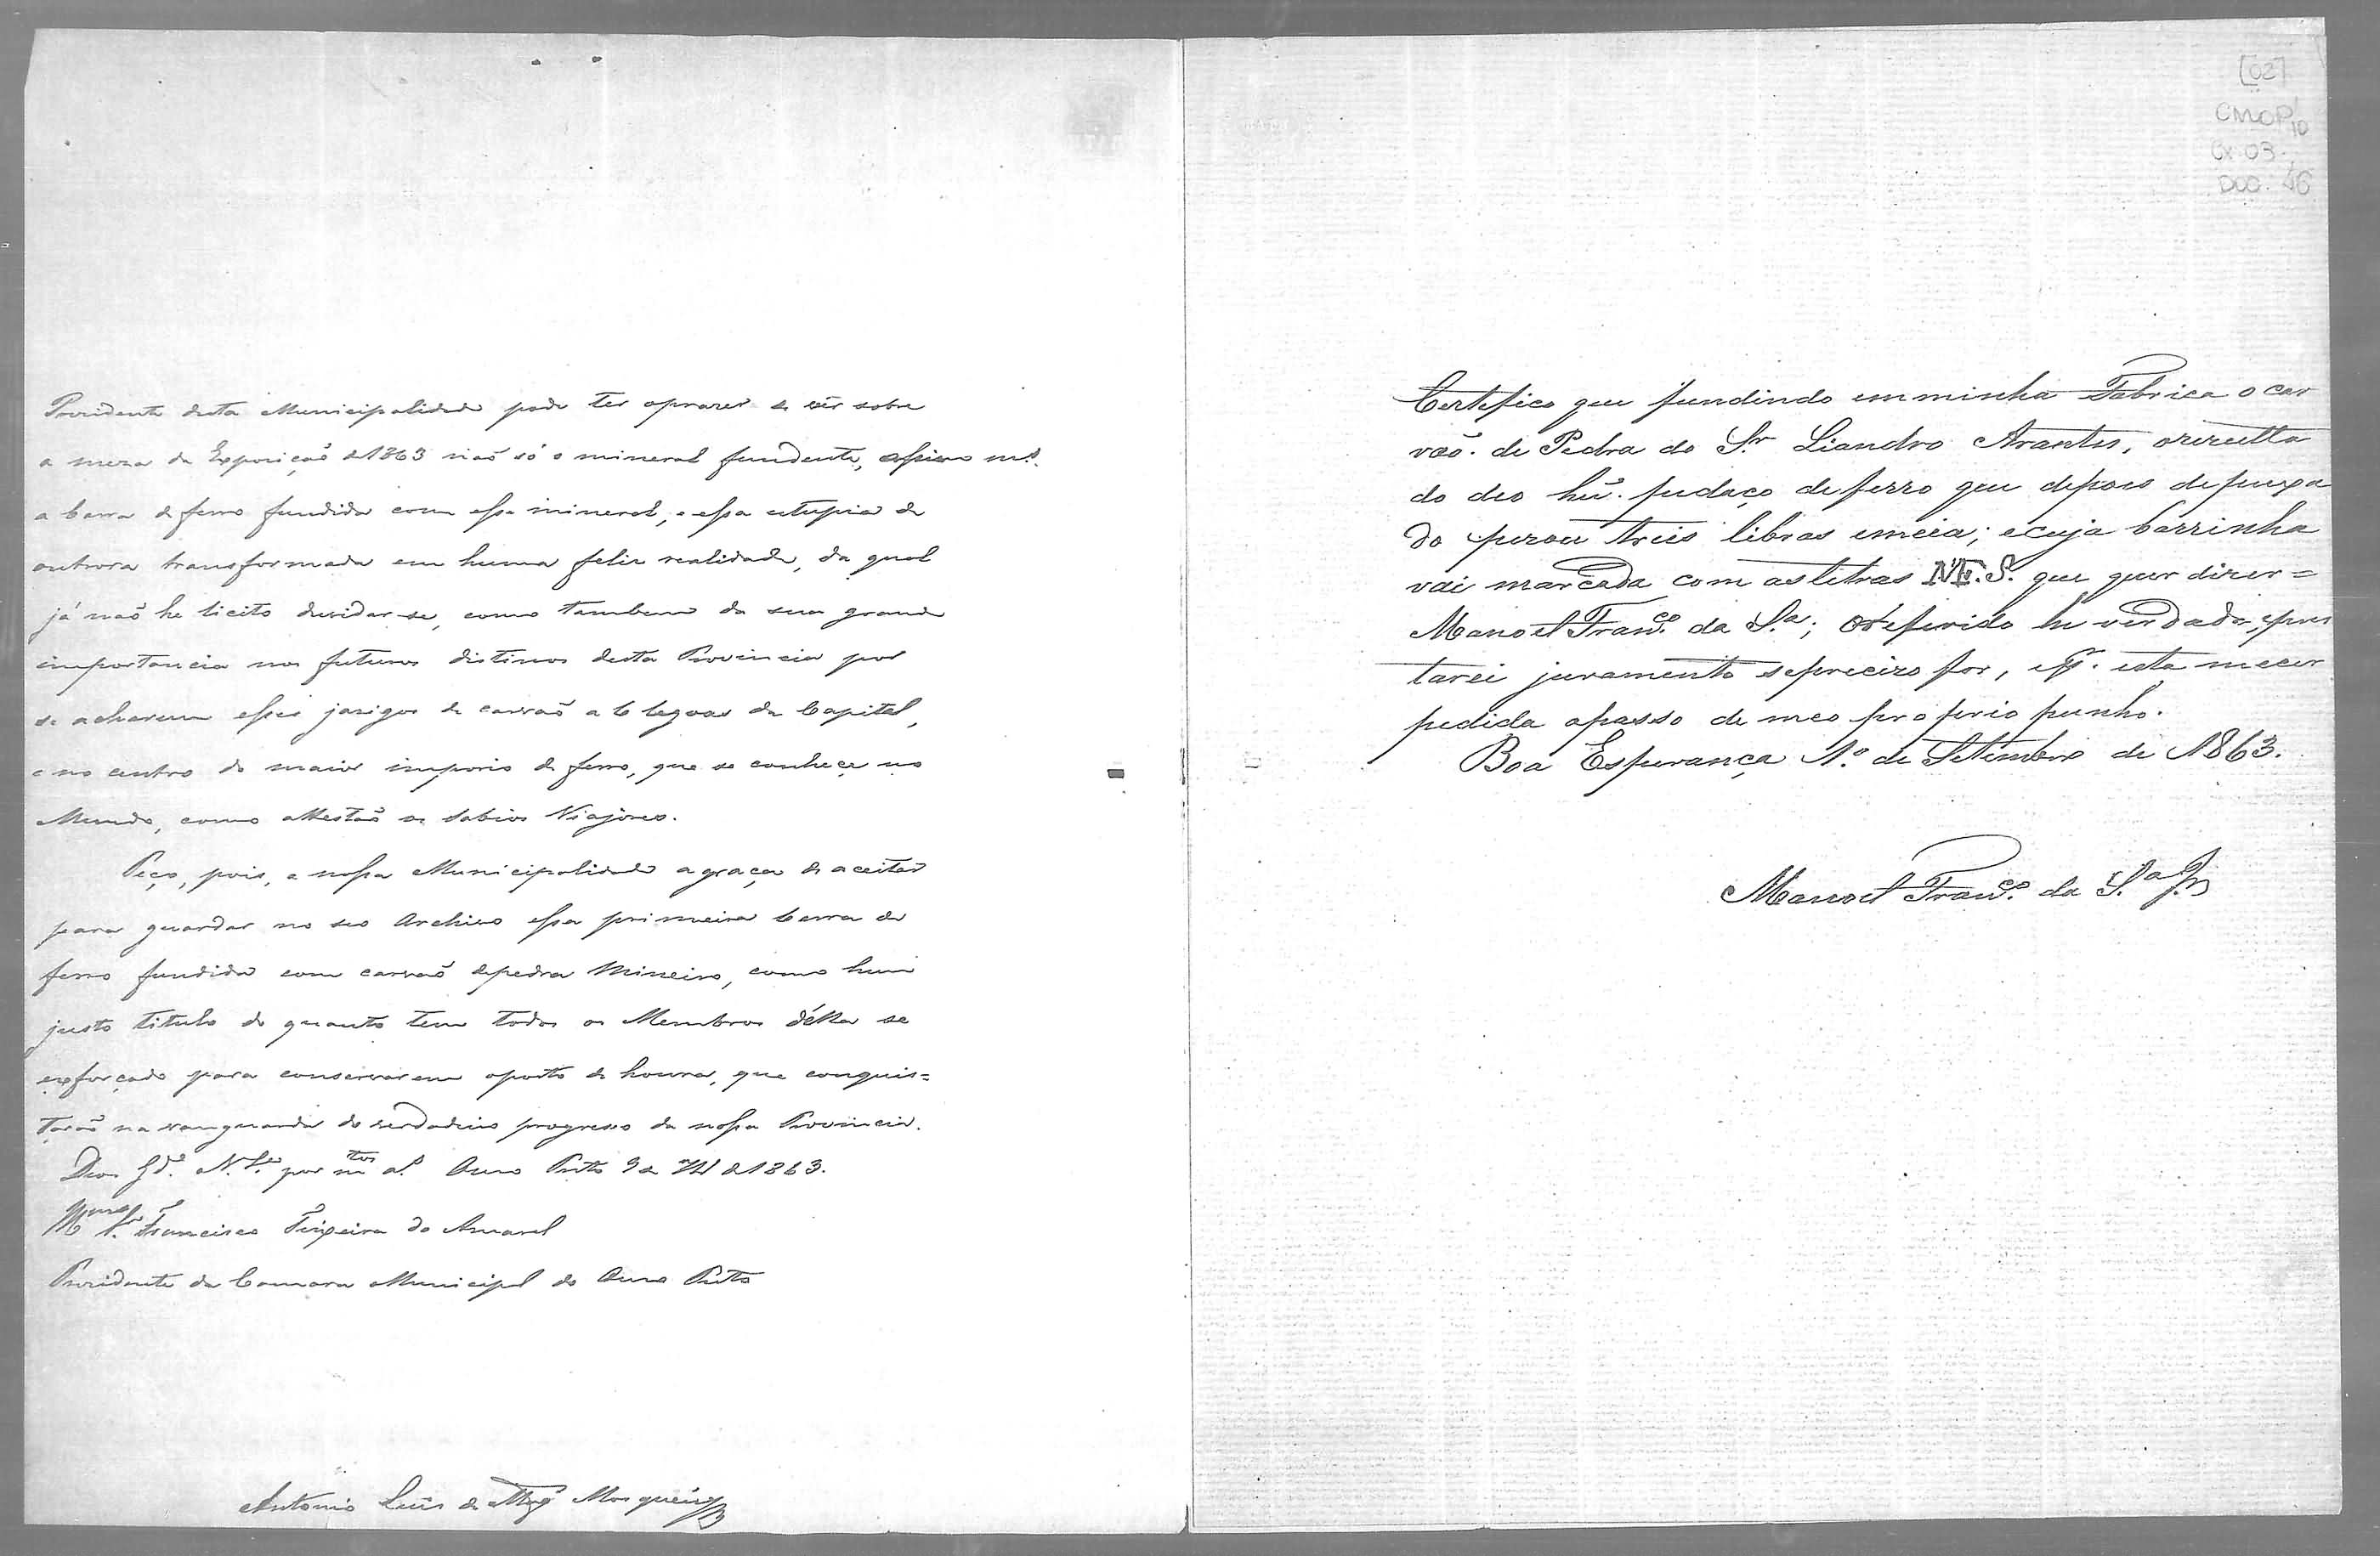 Prezidente desta Municipalidade pode ter oprazer de vêr sobre
a meza da Exposição de 1863 não só o mineral fundente, assim
a barra de ferro fundida com esse mineral, e essa utupia de
outrora transformada em huma feliz realidade, da qual
já naõ he licito duvidar-se, como tambem da sua grande
importancia nos futuros distinos desta Provincia por
se acharem esses jasigos de carvaõ a 6 legoas da Capital,
e no centro do maior imporio de ferro, que se conhece no
Mundo, como attestaõ os sabios Viajores.
Peço, pois, a nossa Municipalidade agraça de aceitar
para guardar no seo Archivo essa primeira barra de
ferro fundida com carvaõ depedra Mineiro, como hum
justo titulo do quanto tem todos os Membros désta se
exforçado para conservarem oposto de honra, que conquis=
taraõ na vanguarda do verdadeiro progresso da nossa Provincia.
Deos Gde. V. Sa. por mtos as. Ouro Preto 9 de 1863.
Sr. Francisco Teixeira do Amaral
Prezidente da Camara Municipal do Ouro Preto
Antonio Luis de Mage. Mosqueira
[02]
CMOP/10
Cx 03.
DOC. 46
Certefico que fundindo emminha Fabrica o car
vaõ. de Pedra do Sr. Liandro Arantes, orezulta
do deo hũ. pedaço deferro que depois depuxa
do pezou treis libras emeia; ecuja barrinha
vai marcada com asletras MF.S. que quer dizer=
Manoel Franco. da Sa.; Oreferido he verdade, epres
tarei juramento sepreciso for, epr. esta mecer
pedida apasso de meo proprio punho.
Boa Esperança 1.º de Setembro de 1863.
Manoel Franco. da Sa. Jr.